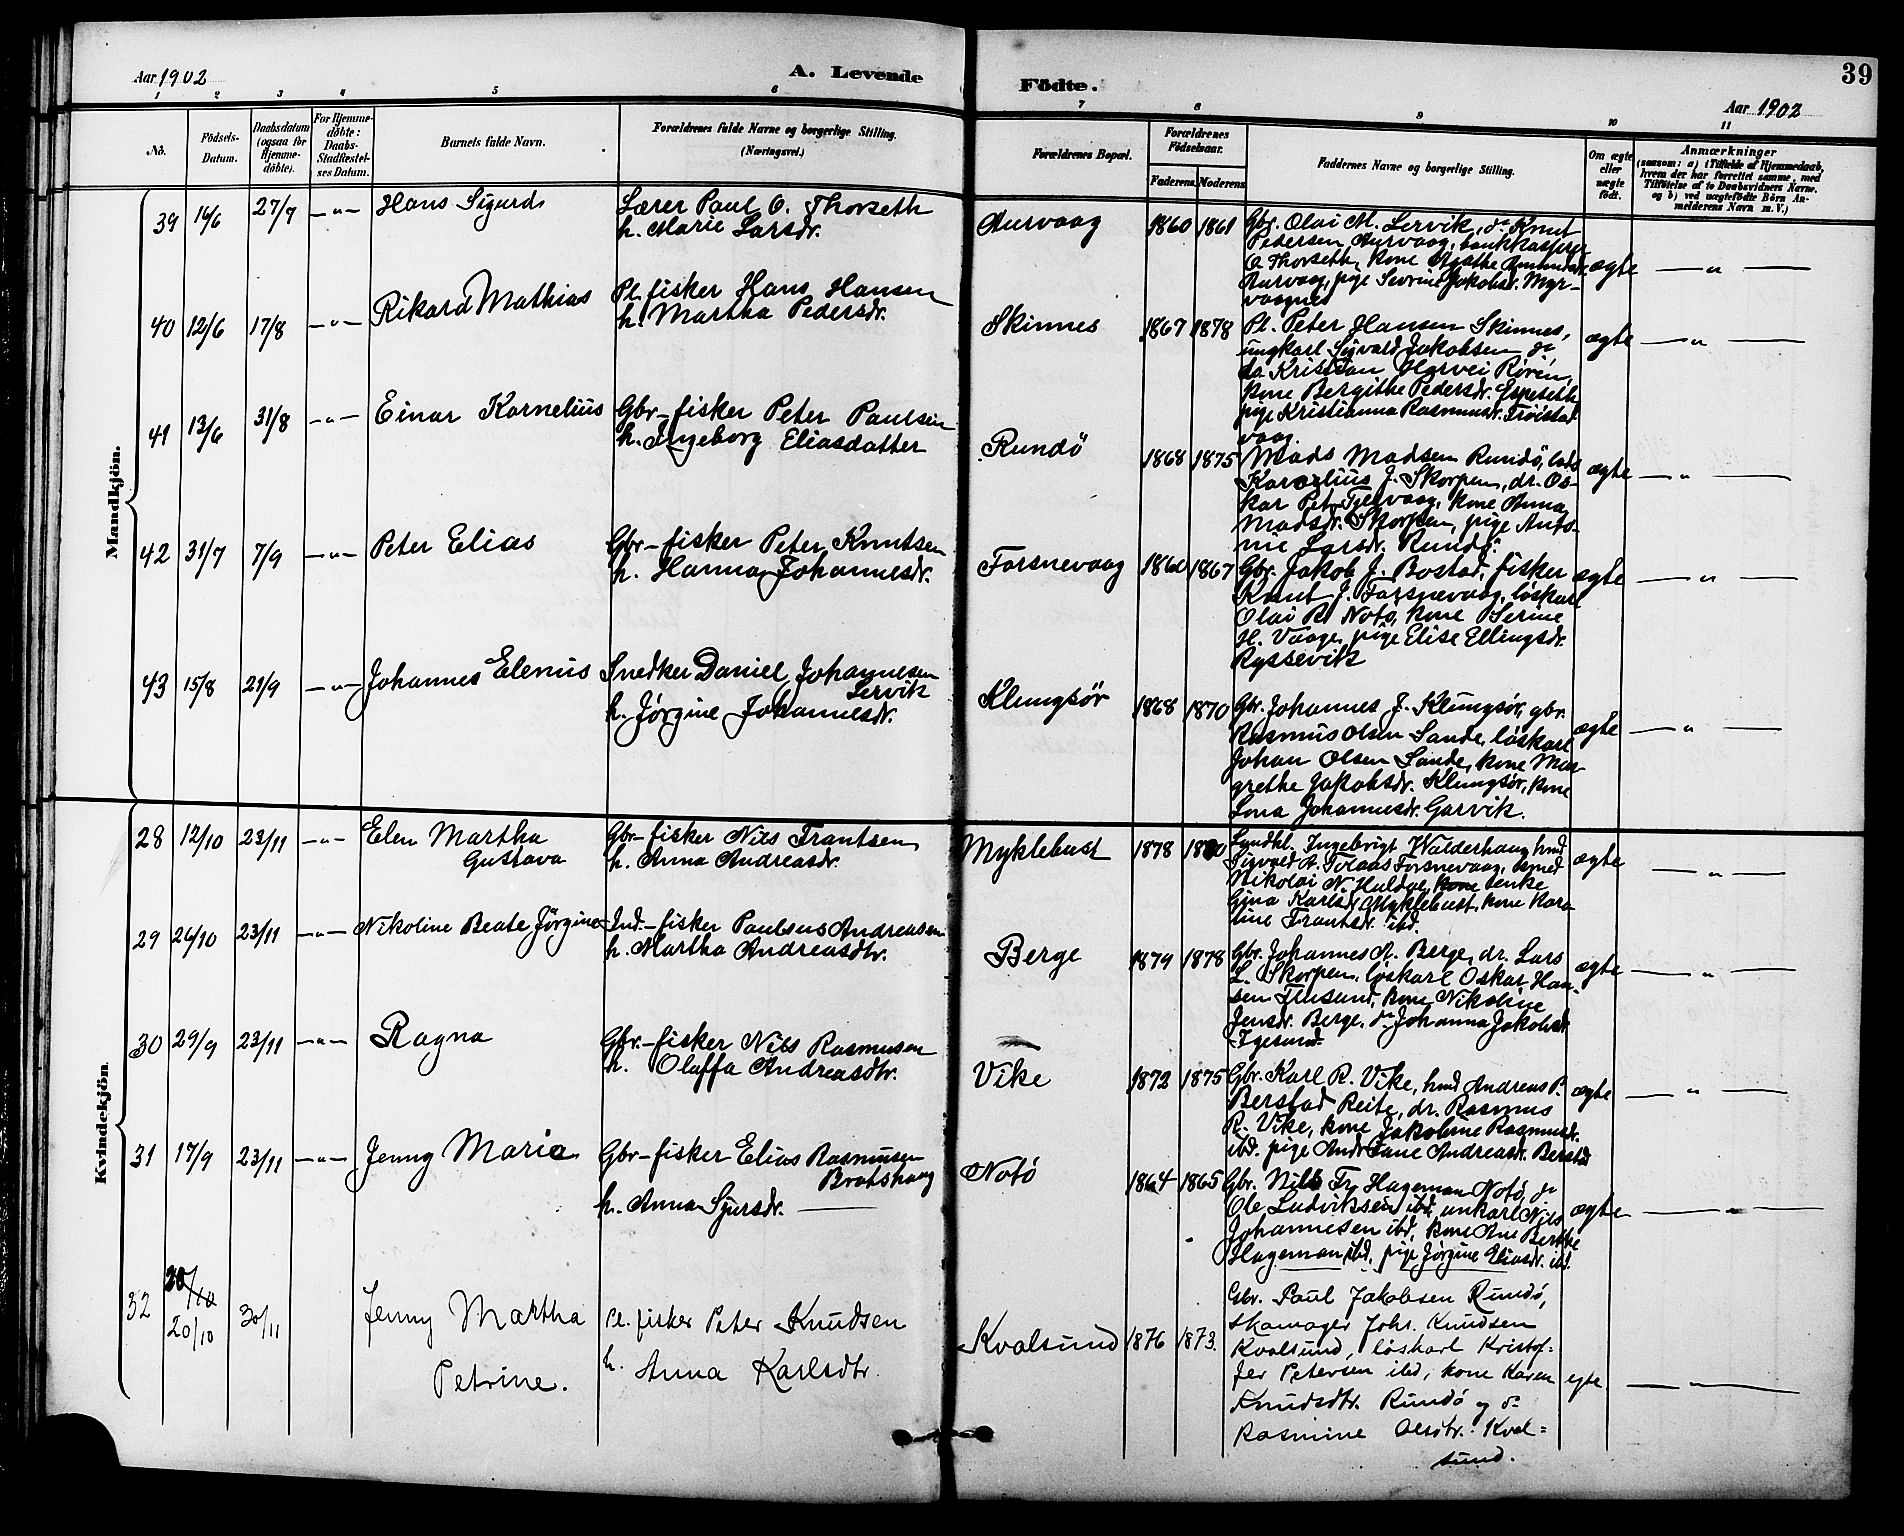 Aar 1902
A. Levende
Födte.
39
Aar 1902
1 2 3 4 5 6 7 8 9 10 11
No.
Födsels-Datum.
Daabsdatum (ogsaa for Hjemmedöbte).
For Hjemmedöbte: Daabs-Stadfæstelses Datum.
Barnets fulde Navn.
Forældrenes fulde Navne og borgerlige Stilling.
(Næringsvei.)
Forældrenes Bopæl.
Forældrenes Födselsaar.
Faderens. Moderens.
Faddernes Navne og borgerlige Stilling.
Om ægte eller uægte födt.
Anmærkninger
(saasom: a) i Tilfælde af Hjemmedaab,
hvem der har forrettet samme, med
Tilföielse af to Daabsvidners Navne.
og b) ved uægtefödte Börn An-
melderens Navn m. V.)
Mandkjön.
39 16/6 27/7 -"- Hans Sigurd
Lærer Paul O. Thorseth
h. Marie Larsdr.
Aurvaag 1860 1861
Gbr. Olai M. Lervik, do Knut
Pedersen Aurvaag, bankkasserer
O Thorseth, kone Agathe
Aurvaag, pige Sevrine Jakobsdr. Myr-
vaagnes
ægte — " —
40 12/6 17/8 -"- Rikard Mathias
Pl. fisker Hans Hansen
h. Martha Pedersdr.
Skinnes 1867 1878
Pl. Peter Hansen Skinnes,
ungkarl Sigvald Jakobsen do
do Kristian Olarvei Røren,
kone Bergithe Pedersdr. Espeseth
pige Kristianna Rasmusdr. Trøistad
vaag.
ægte — " —
41 13/6 31/8 -"- Einar Kornelius
Gbr-fisker Peter Paulsen
h. Ingeborg Eliasdatter
Rundö 1868 1875
Mads Madsen Rundö,
Kornelius J. Skorpen, dr. Os-
kar Pet. Tjervaag, kone Anna
Madsdr. Skorpen, pige Anto-
nie Larsdr. Rundö.
ægte — " —
42 31/7 7/9 -"- Peter Elias
Gbr-fisker Peter Knutsen
h. Hanna Johannesdr.
Forsnevaag 1860 1867
Gbr. Jakob J. Bostad, fisker
Knut J. Forsnevaag, løskarl
Olai R. Notø, kone Serine
H. Vaage, pige Elise Ellingsdr.
Ryssevik
ægte — " —
43 15/8 21/9 -"- Johannes Elenius
Snedker Daniel Johannesen
Lervik
h. Jørgine Johannesdr.
Klungsör 1868 1870
Gbr. Johannes J. Klungsør, gbr.
Rasmus Olsen Sande, løskarl
Johan Olsen Sande, kone Mar
grethe Jakobsdr. Klungsør, kone
Lona Johannesdr. Garvik.
ægte — " —
Kvindekjön.
28 12/10 23/11 -"- Elen Martha
Gustava
Gbr-fisker Nils Frantsen
h. Anna Andreasdr.
Myklebust 1878 1880
Ingebrigt Walderhaug hmd
Sigvald A. Tolaas Forsnevaag, smed
Nikolai N. Huldal, kone enke
Gina Karlsdr. Myklebust, kone Karo
line Frantsdr. ibd.
ægte — " —
29 26/10 23/11 -"- Nikoline Beate Jørgine
Ind.-fisker Paulsus Andreasen
h. Martha Andreasdtr.
Berge 1879 1878
Gbr. Johannes A. Berge, dr. Lars
L. Skorpen, løskarl Oskar Han-
sen Flusund, kone Nikoline
Jensdr. Berge, do Johanna Jakobsdr.
Igesund
ægte — " —
30 29/9 23/11 -"- Ragna
Gbr-fisker Nils Rasmusen
h. Oluffa Andreasdtr.
Vike 1872 1875
Gbr. Karl R. Vike, hmd Andreas P.
Berstad Reite, dr. Rasmus
R. Vike, kone Jakobine Rasmusdr.
ibd. pige Andr Jane Andreasdr. Berstad
ægte — " —
31 17/9 23/11 -"- Jenny Marie
Gbr-fisker Elias Rasmusen
Bratshaug
h. Anna Sjursdr. —
Notö 1864 1865
Gbr. Nils Fr. Hageman Notø, do
Ole Ludviksen ibd, unkarl Nils
Johannesen ibd, kone Ane Berthe
Hageman ibd, pige Jørgine Eliasdr. ibd.
ægte — " —
32 20/10 20/10 30/11 Jenny Martha
Petrine.
Pl. fisker Peter Knudsen
h. Anna Karlsdtr.
Kvalsund 1876 1873.
Gbr. Paul Jakobsen Rundø,
skomager Johs. Knudsen
Kvalsund, løskarl Kristof-
fer Petersen ibd, kone Karen
Knudsdtr. Rundø og do
Rasmine Olsdtr. Kval-
sund.
egte — " —